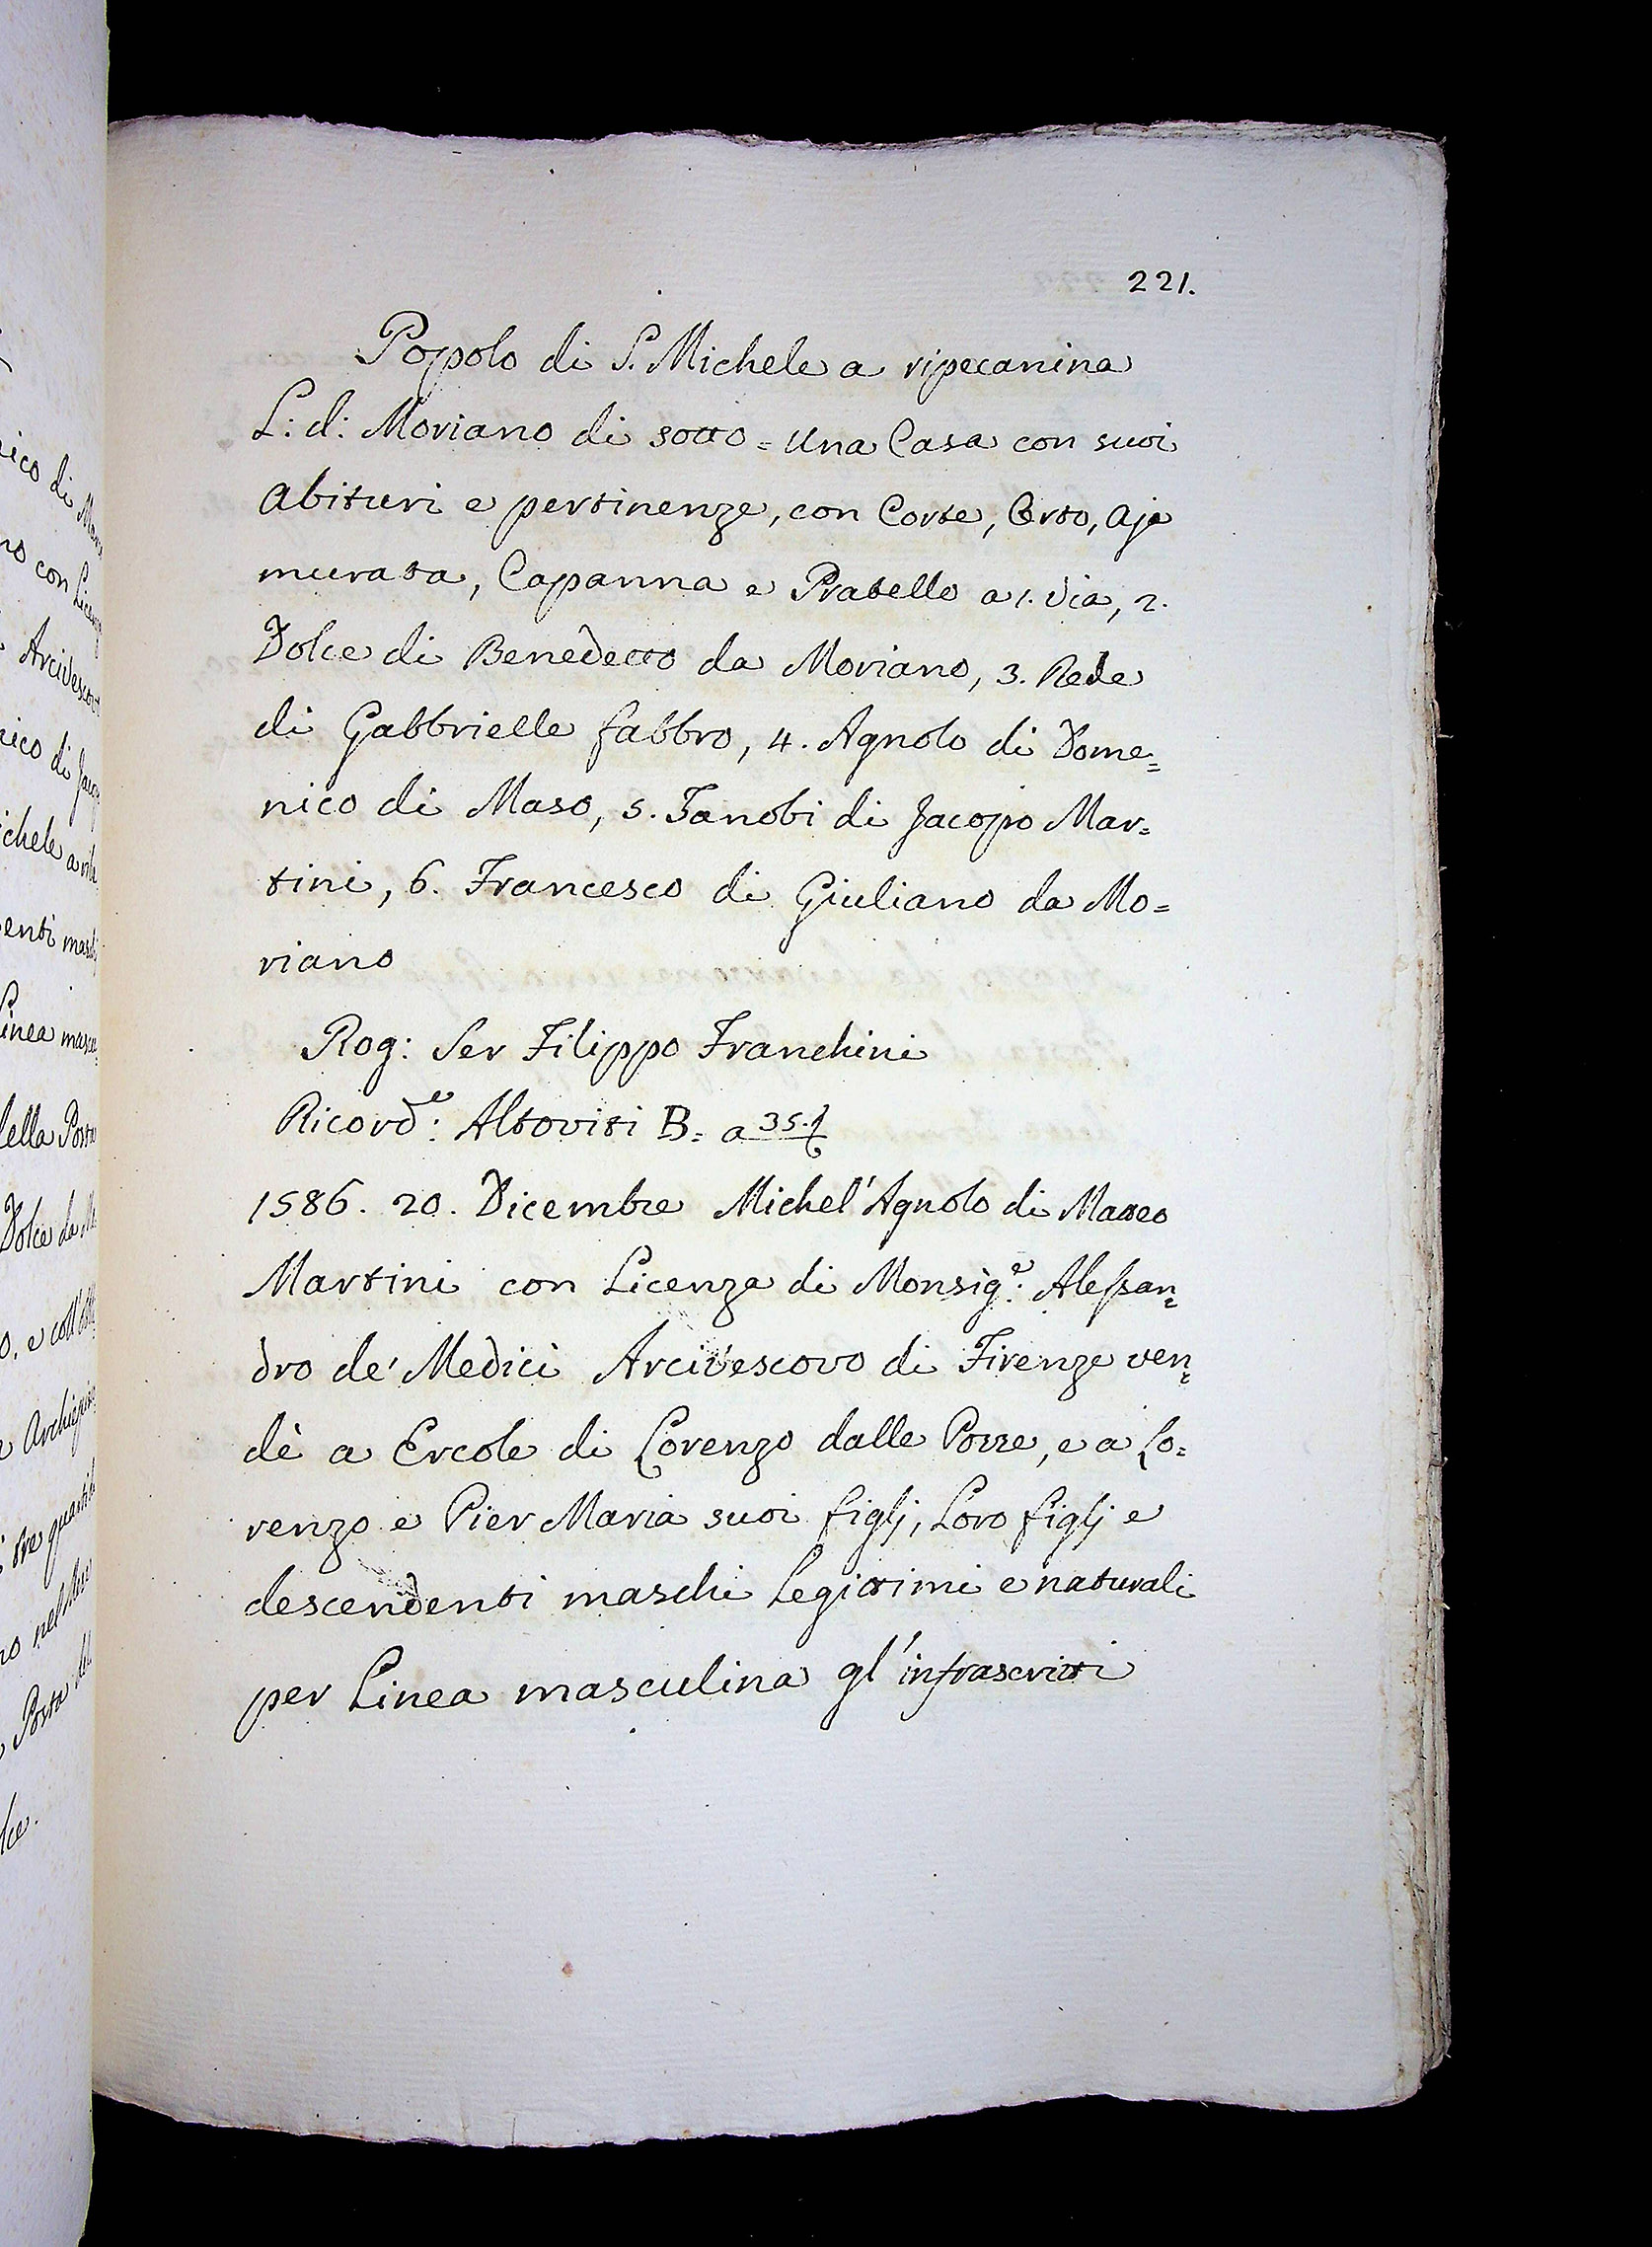 221.
Popolo di S. Michele a ripecanina
L: d: Moriano di sotto = una Casa con suoi
abituri e pertinenze, con Corte, Orto, Aja
murata, Capanna e Pratello a 1. via, 2.
Dolce di Benedetto da Moriano, 3. Rede
di Gabbrielle fabbro, 4. Agnolo di Dome=
nico di Maso, 5. Zanobi di Jacopo Mar=
tini, 6. Francesco di Giuliano da Mo=
riano
Rog: Ser Filippo Franchini
Ricord.e: Altoviti B= a 35.
1586. 20. Dicembre Michel'Agnolo di Matteo
Martini con Licenza di Monsig.e: Alessan=
dro de' Medici Arcivescovo di Firenze ven=
dè a Ercole di Lorenzo dalle Pozze, e a Lo=
renzo e Pier Maria suoi figlj, Loro figlj e
descendenti maschi Legittimi e naturali
per Linea masculina gl'infrascritti
ico di
no con
Arcivescovo
nico di Jacop
ichele a
enti masch
Linea mascu
della Porta
Dolce da
o, e coll'
tre
no nel
Porta
lce.